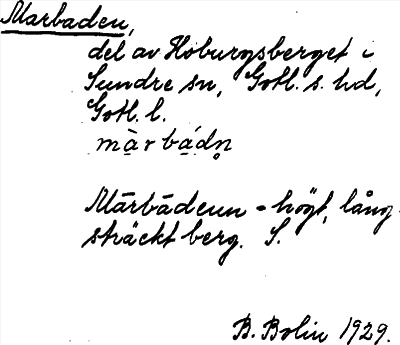 Marbaden,
del av Hoburgsberget i
Sundre sn, Gotl. s. hd,
Gotl. l.
màrbádn̥
Mārbādenn = högt, lång-
sträckt berg. S.
B. Bolin 1929.